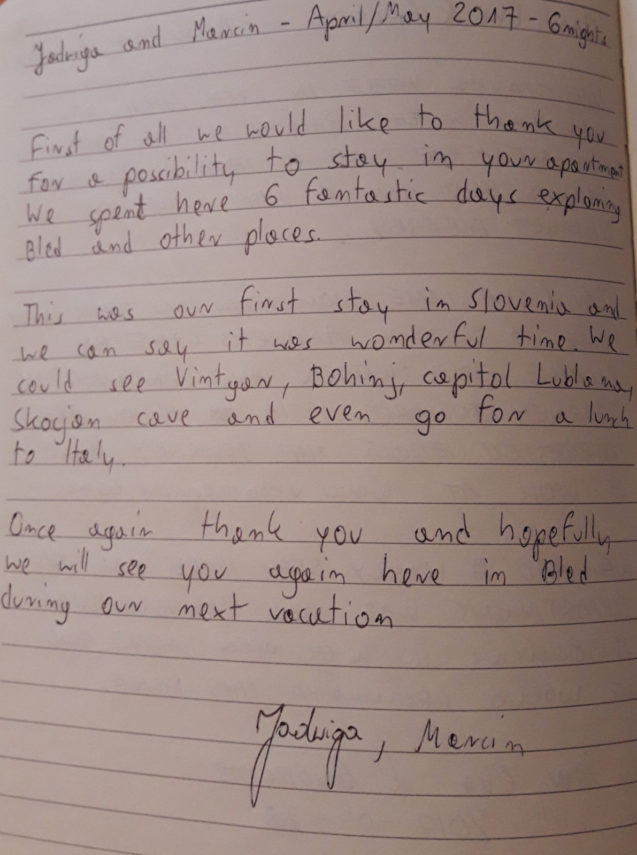 Jadwiga and Marcin - April/May 2017 - 6 nights
First of all we would like to thank you
for a possibility to stay in your apartment
We spent here 6 fantastic days exploring
Bled and other places.
This was our first stay in Slovenia and
we can say it was wonderful time. We
could see Vintgar, Bohinj, capitol Lublana,
Skocjan cave and even go for a lunch
to Italy.
Once again thank you and hopefully
we will see you again here in Bled
during our next vacation
Jadwiga, Marcin